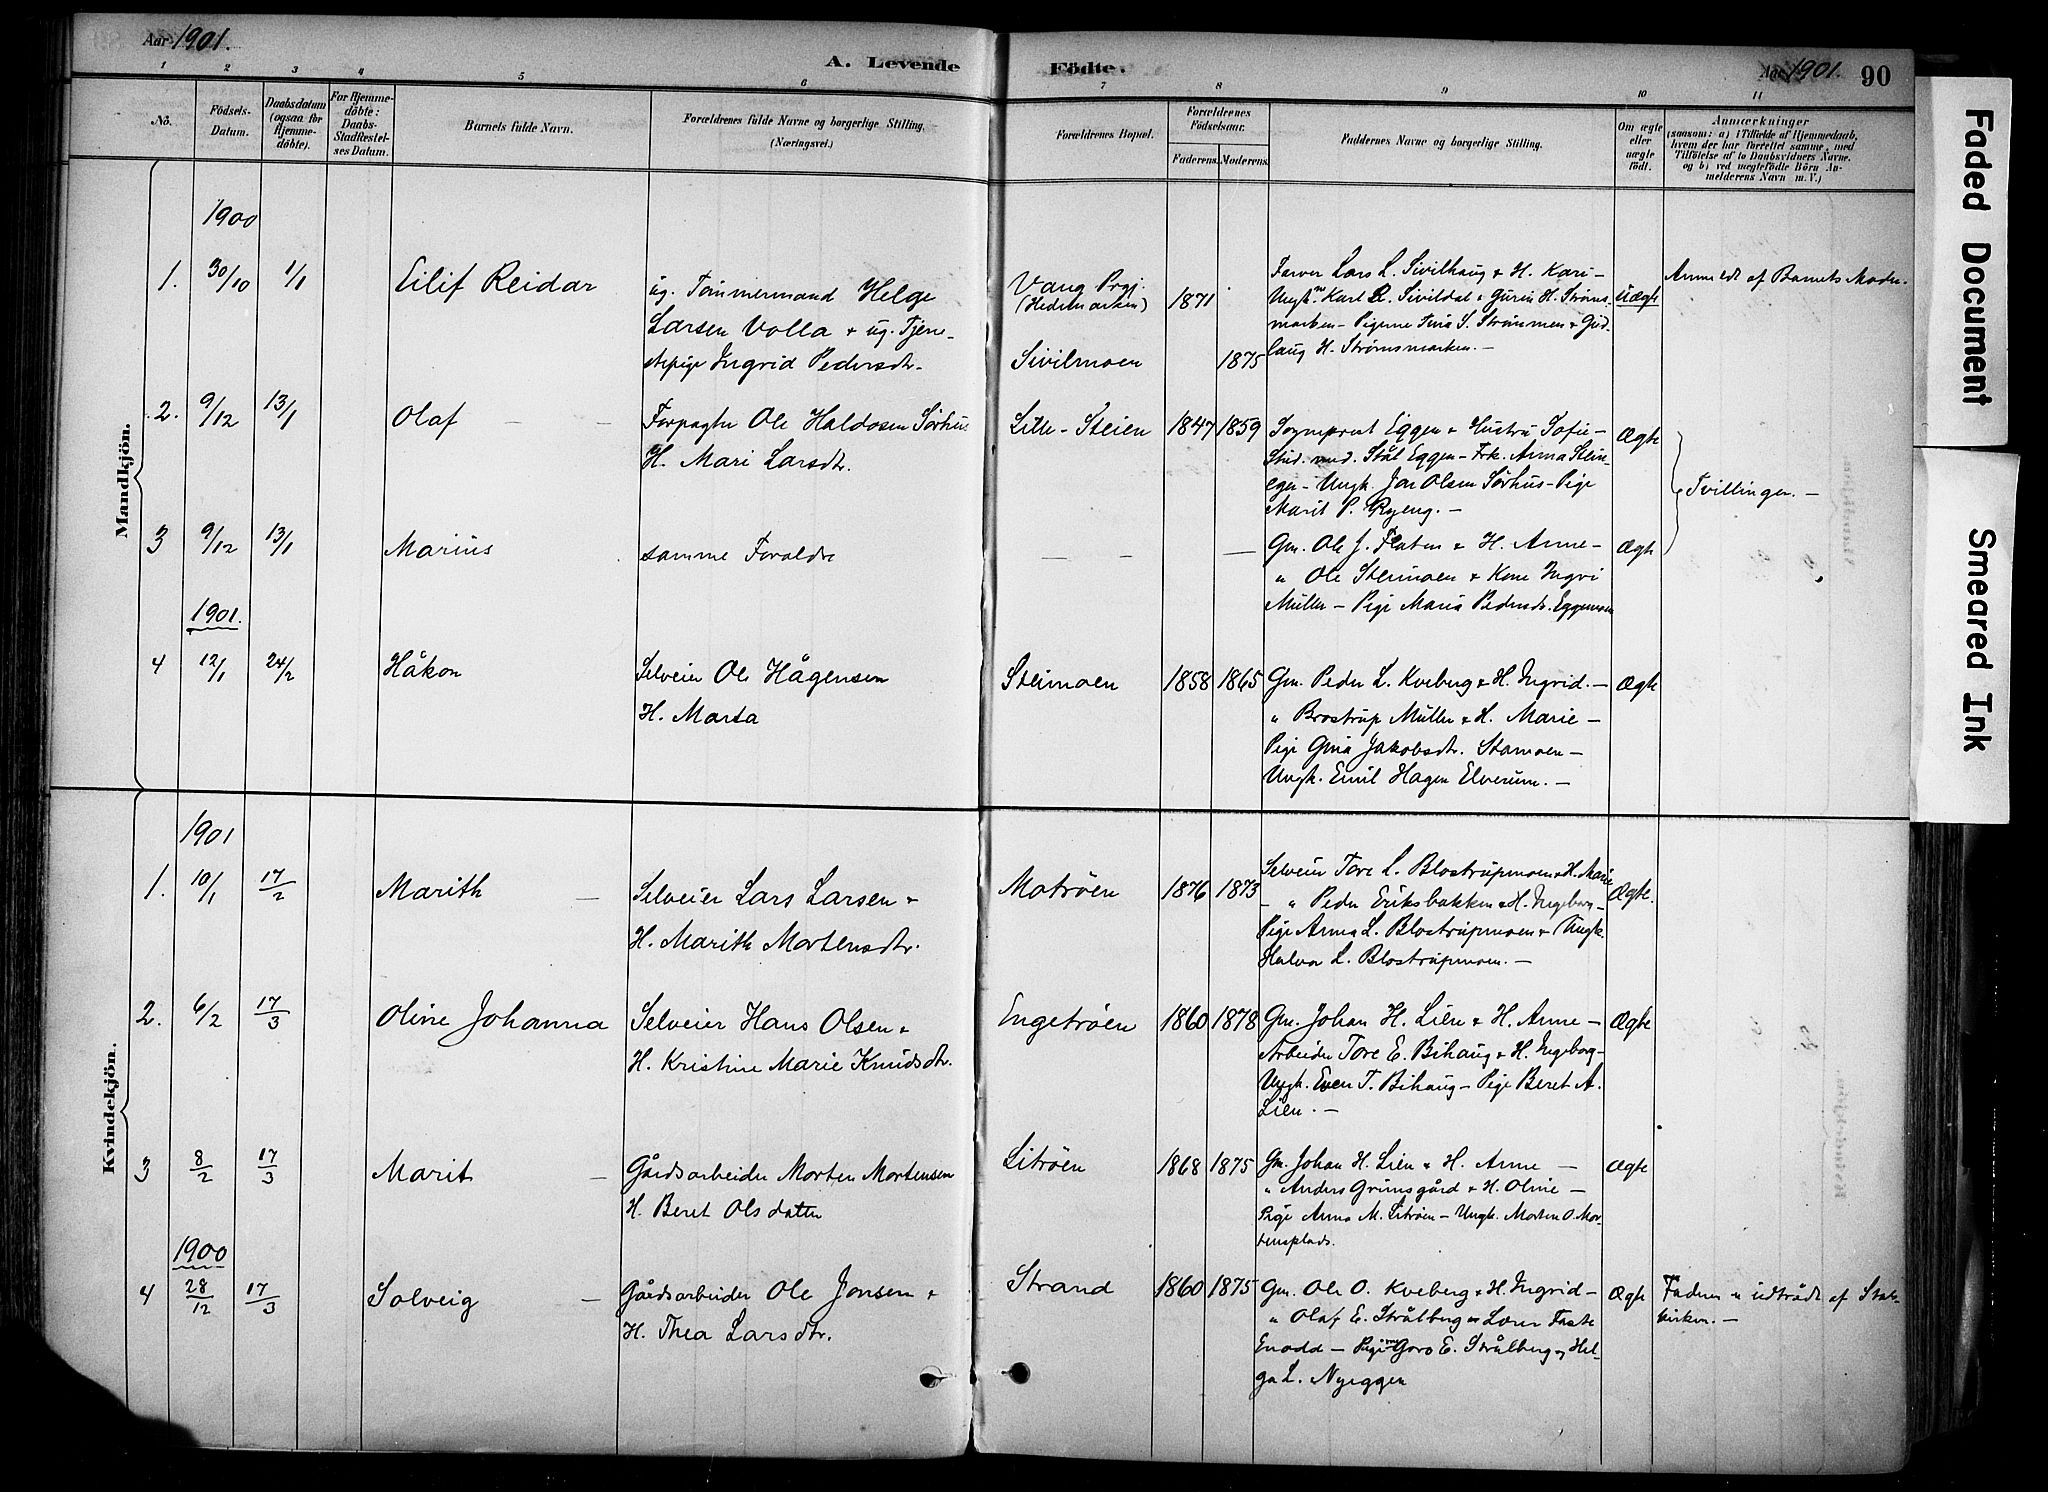 Aar 1901.
A. Levende Födte.
Aar 1901. 90
1 2 3 4 5 6 7 8 9 10 11
No.
Födsels-
Datum.
Daabsdatum
(ogsaa for
Hjemme-
döbte).
For Hjemme-
döbte:
Daabs-
Stadfæstel-
ses Datum.
Barnets fulde Navn.
Forældrenes fulde Navne og borgerlige Stilling.
(Næringsvei.)
Forældrenes Bopæl.
Forældrenes
Födselsaar.
Faderens. Moderens.
Faddernes Navne og borgerlige Stilling.
Om ægte
eller
uægte
födt.
Anmærkninger
(saasom: a) i Tilfælde af Hjemmedaab,
hvem der har forrettet samme, med
Tilföielse af to Daabsvidners Navne.
og b) ved uægtefödte Börn An-
melderens Navn m. V.)
Mandkjön.
1900
1. 30/10 1/1 Eilif Reidar
ug. Tømmermand Helge
Larsen Volla & ug. Tjene-
stepige Ingrid Pedersdtr.
Vang Prgj.
(Hedemarken) 1871
Sivilmoen 1875
Farver Lars L. Sivilhaug & H. Kari –
Ungk. Karl R. Sivildal & Guri H. Strøms-
marken – Pigerne Tina S. Strømmen & Gud-
laug H. Strømsmarken. –
Uægte
Anmeldt af Barnets Moder.
2. 9/12 13/1 Olaf –
Forpagter Ole Haldosen Sørhus
H. Mari Larsdtr.
Lille-Steien 1847 1859
Sogneprest Eggen & Hustru Sofie –
Stud. med. Stål Eggen – Frk. Anna Stein-
eger – Ungk. Jon Olsen Sørhus – Pige
Marit P. Ryeng. –
Ægte
Tvillinger. –
3 9/12 13/1 Marius
samme Forældre
— — —
Gm. Ole J. Fløten & H. Anne –
" Ole Steimoen & Kone Ingri
Müller – Pige Maria Pedersdtr. Eggemoen
Ægte
1901.
4 12/1 24/2 Håkon
Selveier Ole Hågensen
H. Marta
Steimoen 1858 1865
Gm. Peder L. Kveberg & H. Ingrid. –
" Brostrup Müller & H. Marie –
Pige Gina Jakobsdtr. Stamoen –
Ungk. Emil Hagen Elverum. –
Ægte
Kvindekjön.
1901
1. 10/1 17/2 Marith –
Selveier Lars Larsen &
H. Marith Mortensdtr.
Motrøen 1876 1873
Selveier Tore L. Blostrupmoen & H. Marie
– " Peder Eriksbakken & H. Ingeborg –
Pige Anna L. Blostrupmoen & Ungk.
Halvor L. Blostrupmoen. –
Ægte.
2. 6/2 17/3 Oline Johanna
Selveier Hans Olsen &
H. Kristine Marie Knudsdtr.
Engetrøen 1860 1878
Gm. Johan H. Lien & H. Anne –
Arbeider Tore E. Bihaug & H. Ingeborg –
Ungk. Even T. Bihaug – Pige Beret A.
Lien. –
Ægte
3 8/2 17/3 Marit –
Gårdsarbeider Morten Mortensen
H. Beret Olsdatter
Litrøen 1868 1875
Gm. Johan H. Lien & H. Anne –
" Anders Grimsgård & H. Oline –
Pige Anna M. Litrøen – Ungk. Morten O. Mor-
tensplads.
Ægte
1900
4 28/12 17/3 Solveig –
Gårdsarbeider Ole Jonsen &
H. Thea Larsdtr.
Strand 1860 1875
Gm. Ole O. Kveberg & H. Ingrid –
" Olaf E. Strålberg og Lærer Faste
Enodd – Pigerne Goro E. Strålberg og Hel-
ga L. Nyeggen
Ægte
Faderen er udtrådt af Stats-
kirken. –
Faded Document
Smeared Ink